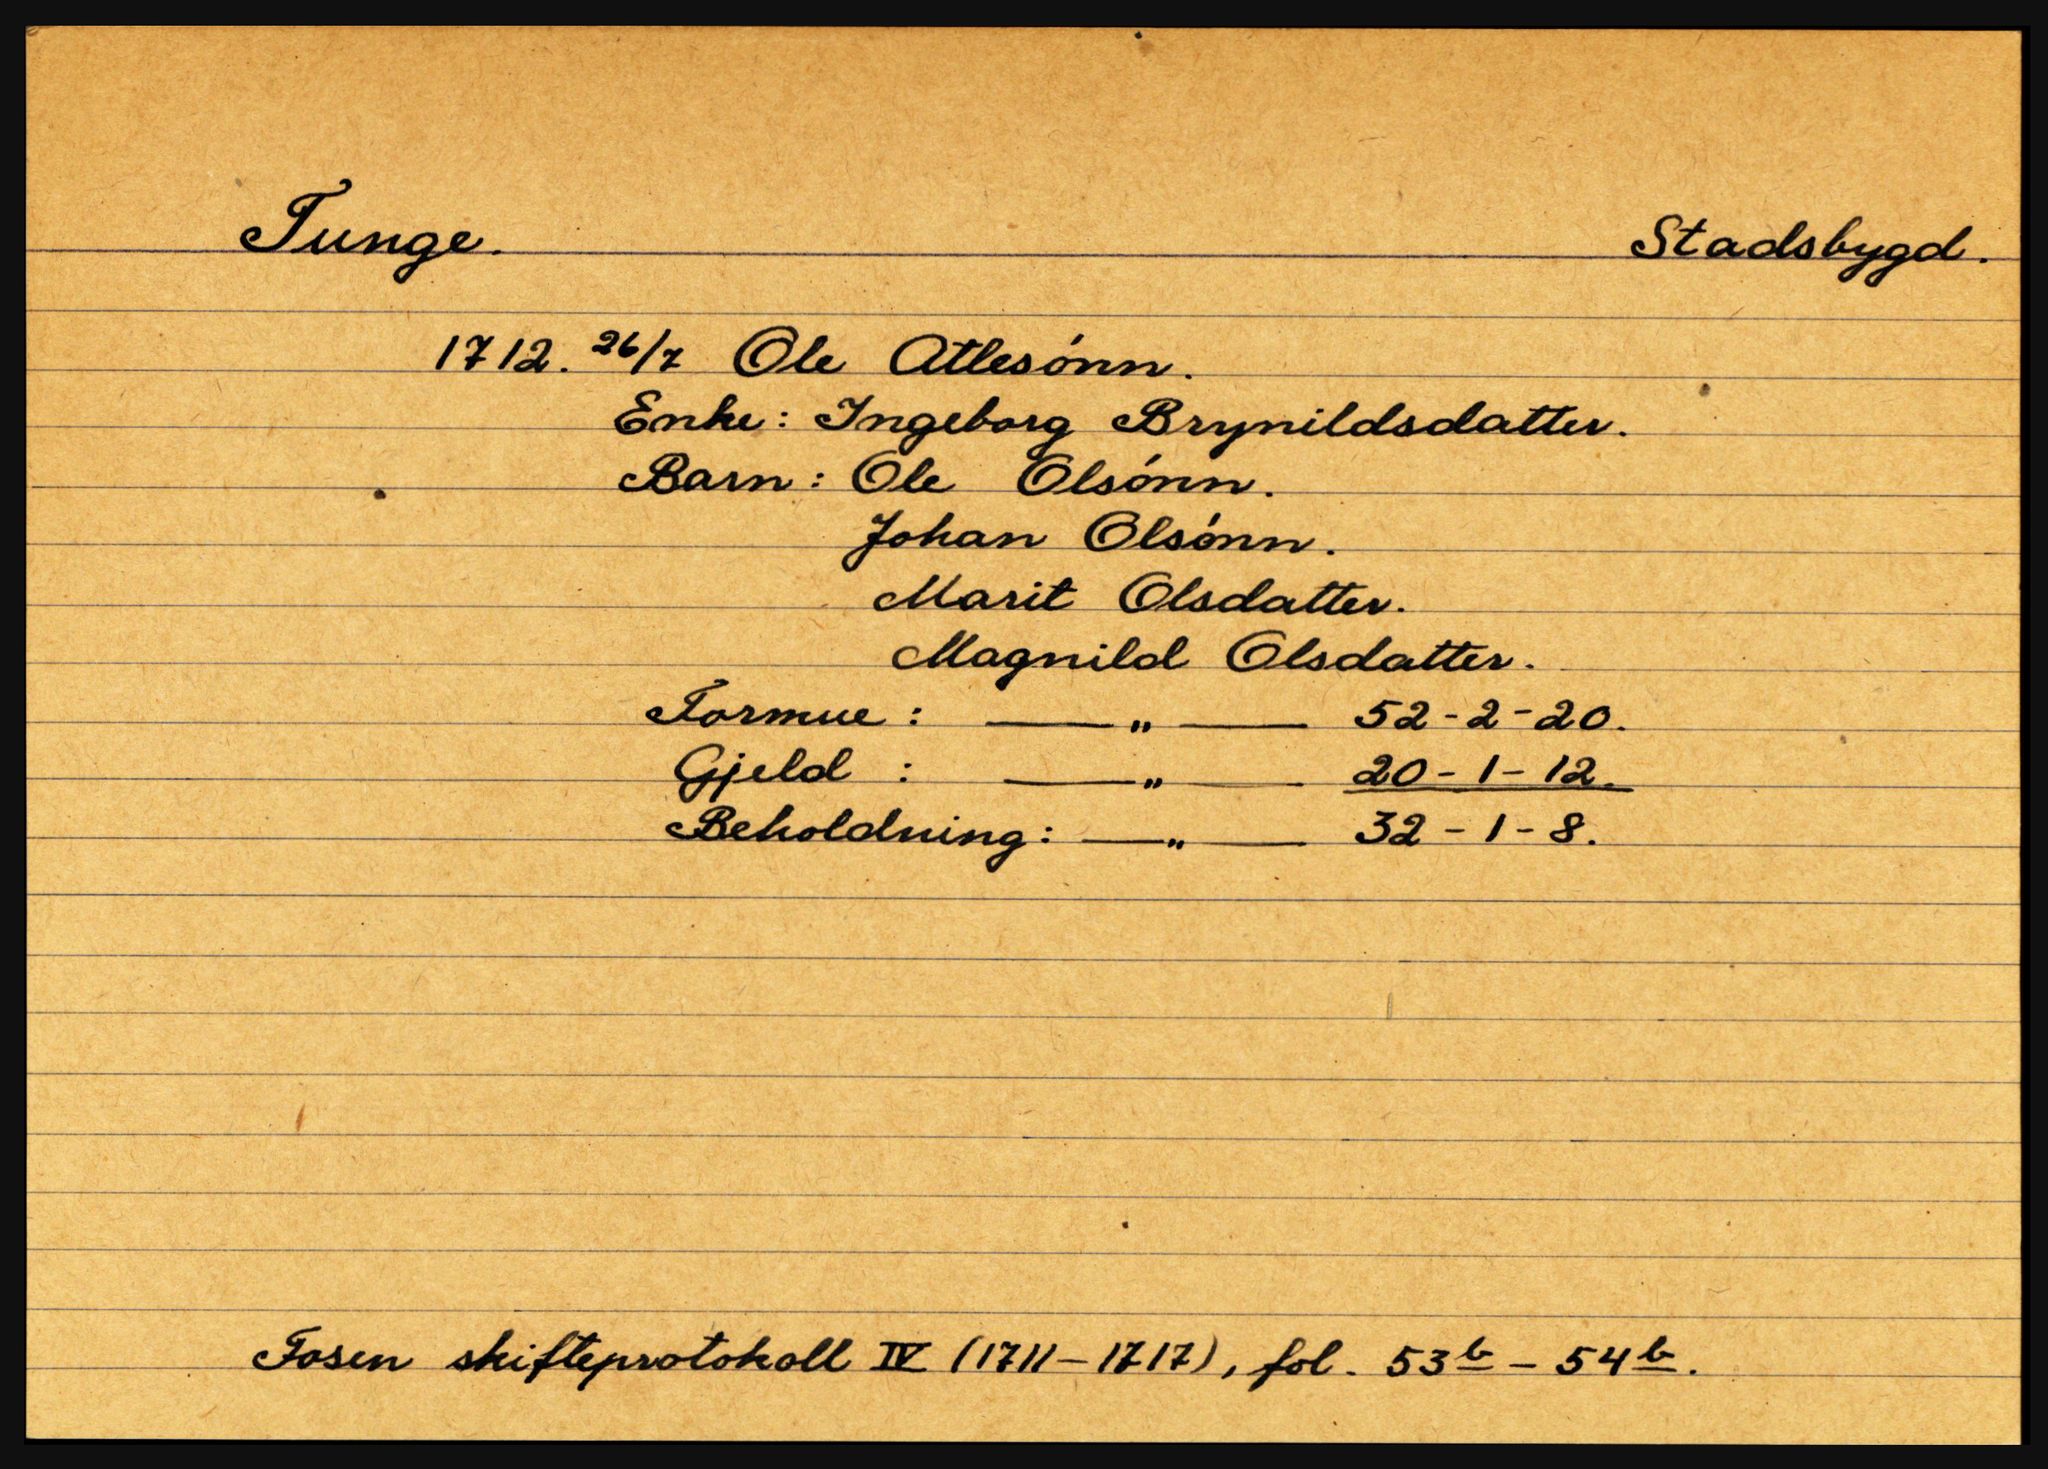 Tunge. Stadsbygd.
1712. 26/7 Ole Atlesónn.
Enke: Ingeborg Brynildsdatter.
Barn: Ole Olsónn.
Johan Olsónn.
Marit Olsdatter.
Magnild Olsdatter.
Formue: —„— 52-2-20.
Gjeld : —„— 20-1-12.
Beholdning: —„— 32-1-8.
Fosen skifteprotokoll IV (1711-1717), fol. 53b - 54b.